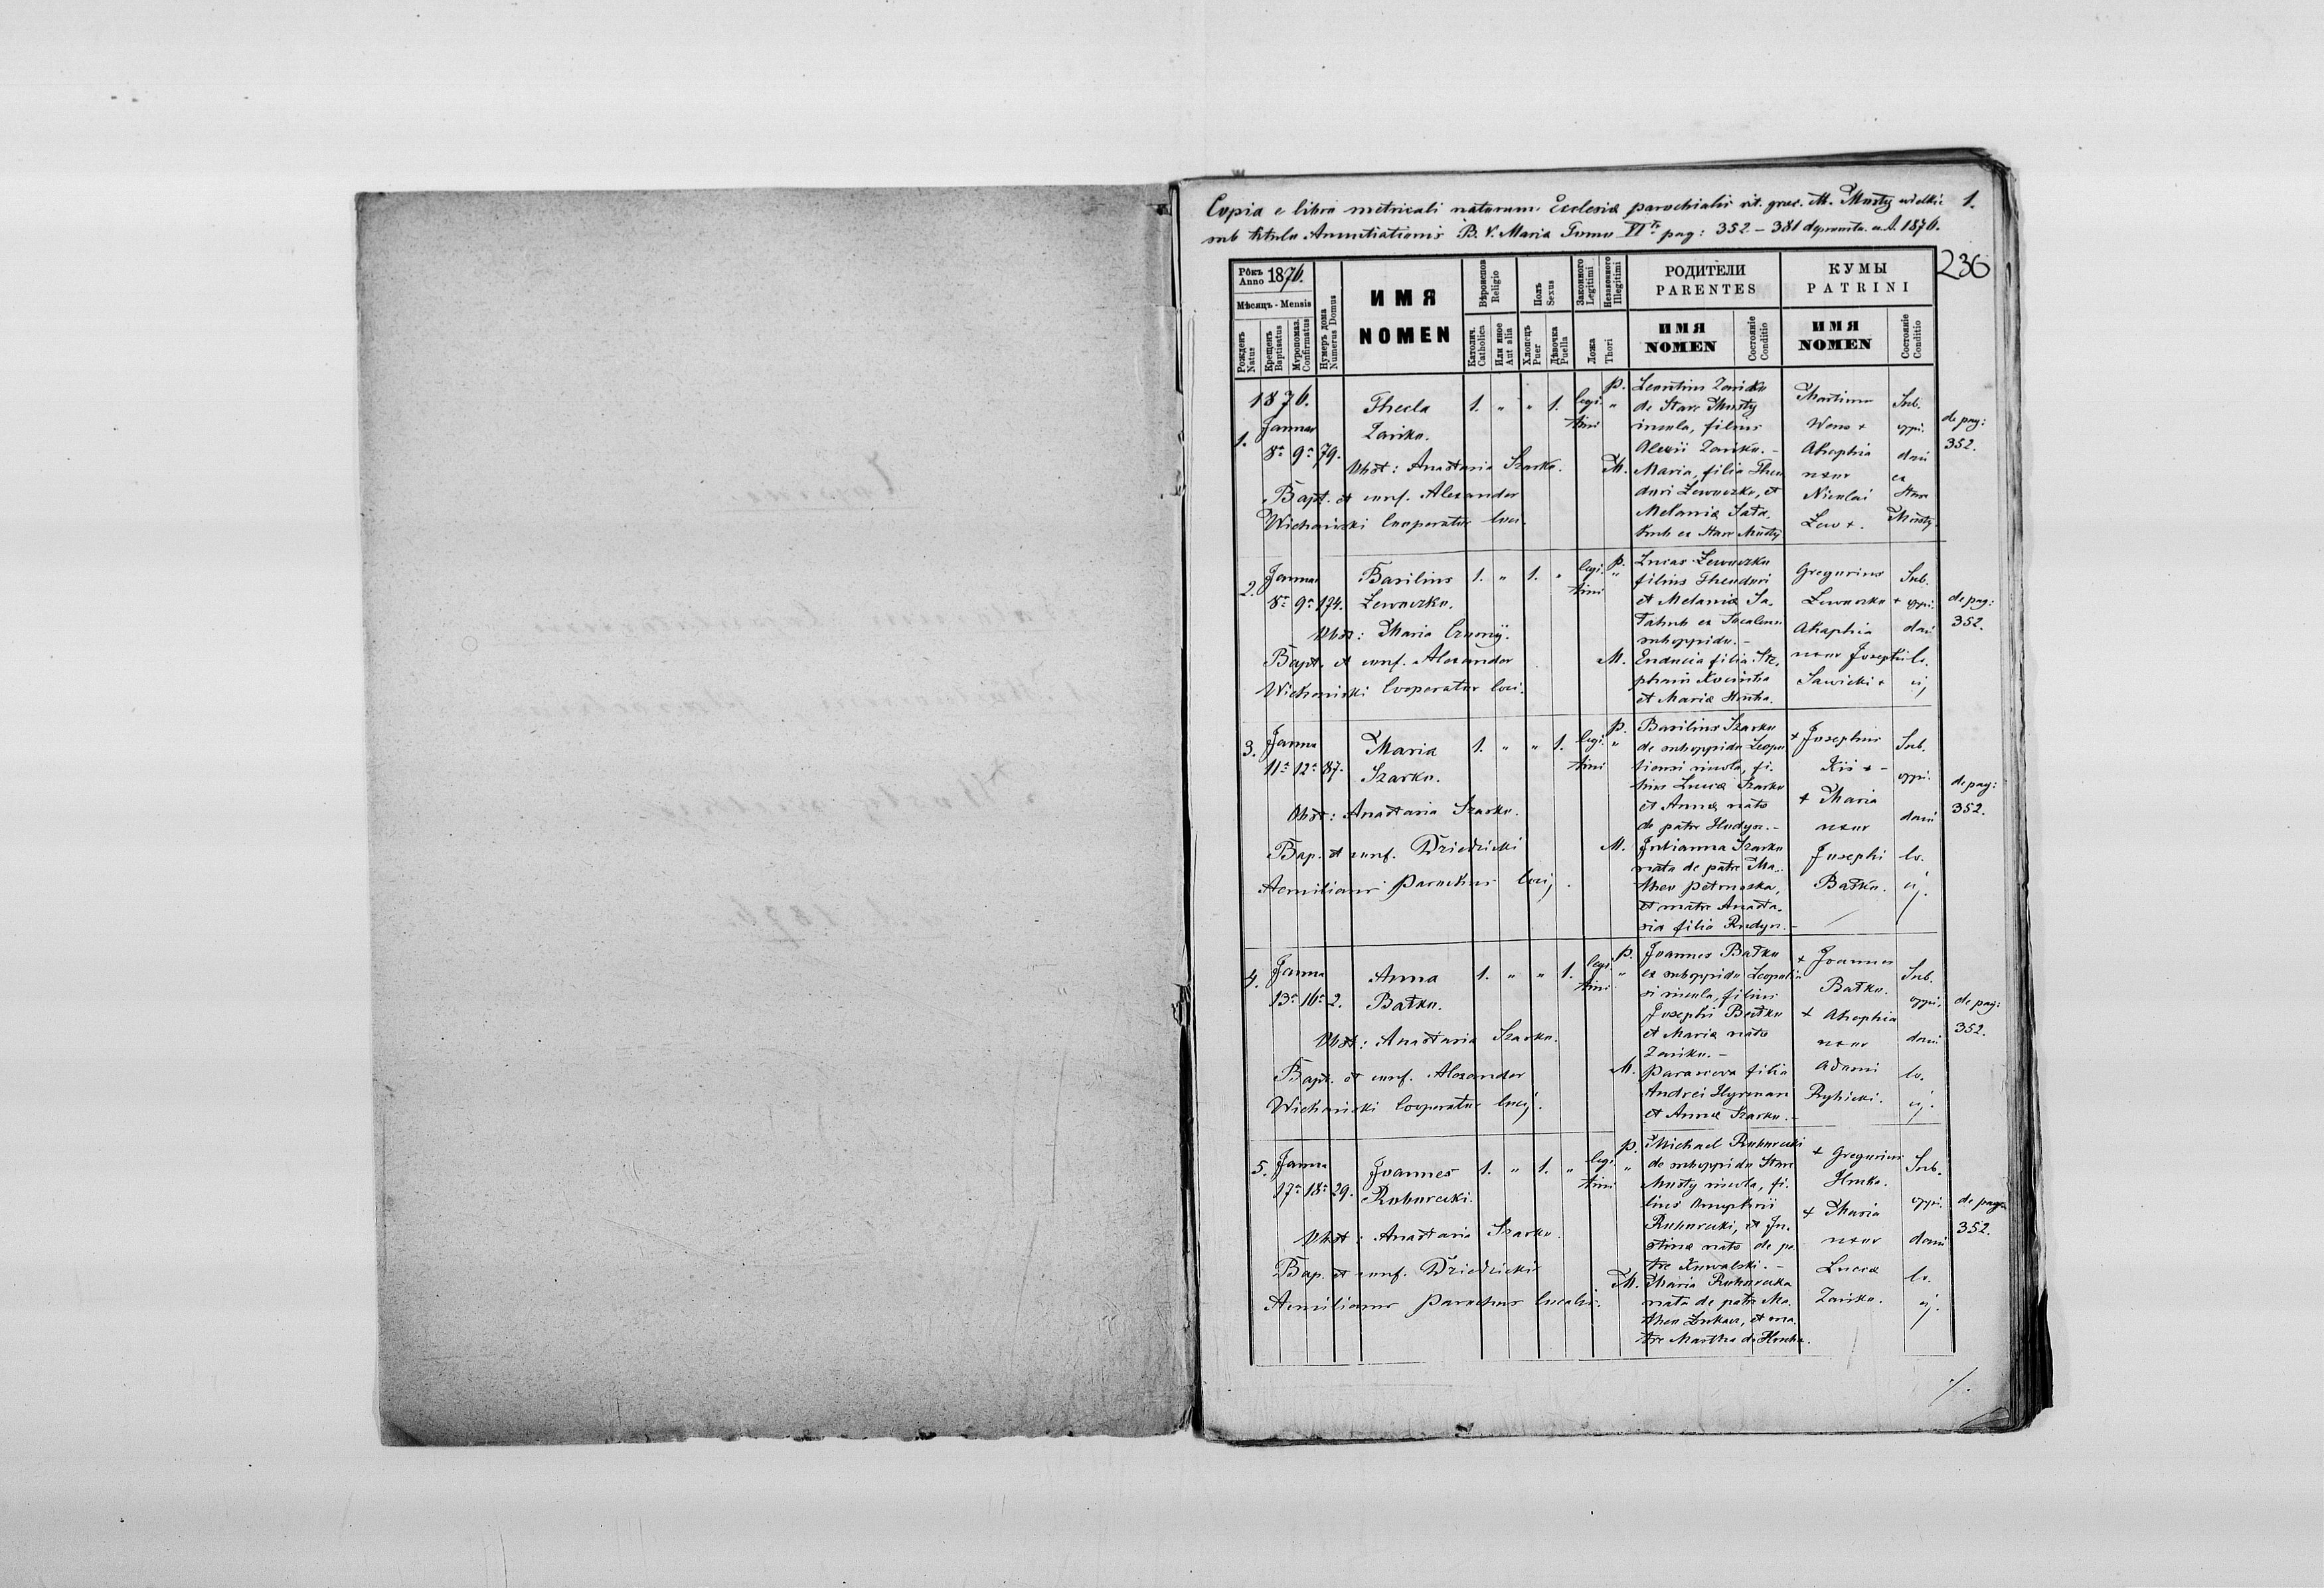 Copia e libro metricali natorum Ecclesiæ parochialis rit. græc. M. Mosty wielkie 1.
sub titulo Anuntiationis B. V. Maria Tomo VI to pag: 352 – 381 deprompta. a A. 1876.
236
Рôкъ Anno 1876.
Мѣсяцъ - Mensis
Рожденъ Natus
Крещенъ Baptisatus
Муропомаз. Confirmatus
Нумеръ дома Numerus Domus
ИМЯ
NOMEN
Вѣроисповѣд. Religio
Католич. Catholica
Или иное Aut alia
Полъ Sexus
Хлопецъ Puer
Дѣвочка Puella
Законного Legitimi
Незаконного Illegitimi
Ложа Thori
РОДИТЕЛИ
PARENTES
ИМЯ
NOMEN
Состояніе Conditio
КУМЫ
PATRINI
ИМЯ
NOMEN
Состояніе Conditio
1876.
1. Januar
8a 9a 79.
Thecla
Zariko.
1. „ „ 1. legi „
timi
Obst: Anastasia Szarko.
Bapt. et conf. Alexander
Cooperator loci.
P. Leontius Zariko
de Stare Mosty
incola, filius
Alexii Zariko. –
M. Maria, filia Theo
dori Lewoczko, et
Melaniæ Sata
hub ex Stare Mosty
Martinus
Wono +
Ahaphia
uxor
Nicolai
Lew +.
Sub.
oppi.
dani
ex
Stare
Mosty.
de pag:
352.
2. Januar
8a 9a 174.
Basilius
Lewoczko.
1. „ 1. „ legi. „
timi
Obst: Maria
Bapt. et conf. Alexander
Cooperator loci.
P. Lucas Lewoczko
filius Theodori
et Melaniæ Sa.
tahub ex
suboppido. –
M. Eudocia filia Ste.
phani
et Mariæ Hnitka.
Gregorius
Lewoczko +
Ahaphia
uxor Josephi
Sawicki +
Sub.
oppi.
dani
lo.
cij
de pag:
352.
3. Janua
11a 12a 87.
Maria
Szarko.
1. „ „ 1. legi. „
timi
Obst: Anastasia Szarko.
Bap. et conf. Dziedzicki
Aemilianus Parochus locij.
P. Basilius Szarko
de suboppido Leopo
liensi incola, fi.
lius Lucæ Szarko
et Annæ nata
de patre Hudyn. –
M. Julianna Szarko
nata de patre Ma.
theo
et matre Anasta.
sia filia Rudyn. –
+ Josephus
Kii + –
+ Maria
uxor
Josephi
Batko.
Sub.
oppi.
dani
lo.
cij.
de pag:
352.
4. Janua
13a 16a 2.
Anna
Batko.
1. „ „ 1. legi „
timi
Obst: Anastasia Szarko.
Bapt. et conf. Alexander
Cooperator locij.
P. Joannes Batko
ex suboppido Leopolien
si incola, filius
Josephi Batko
et Mariæ nata
Zariko. –
M. Parasceva filia
Andrei Hyrman
et Annæ Szarko. –
+ Joannes
Batko.
+ Ahaphia
uxor
Adami
Rybicki.
Sub.
oppi.
dani
lo.
cij.
de pag:
352.
5. Janua
17a 18a 29.
Joannes
1. „ 1. „ legi. „
timi
Obst: Anastasia Szarko.
Bap. et conf. Dziedzicki
Aemilianus Parochus localis.
P. Michael
de suboppido Stare
Mosty incola, fi.
lius Onuphrii
et Ju.
stinæ nata de pa.
tre Kowalski. –
M. Maria
nata de patre Ma.
theo Lukacz, et ma.
tre Martha de Hnitka.
+ Gregorius
Hnitka.
+ Maria
uxor
Lucæ
Zariko.
Sub.
oppi.
dani
lo.
cij.
de pag:
352.
./.